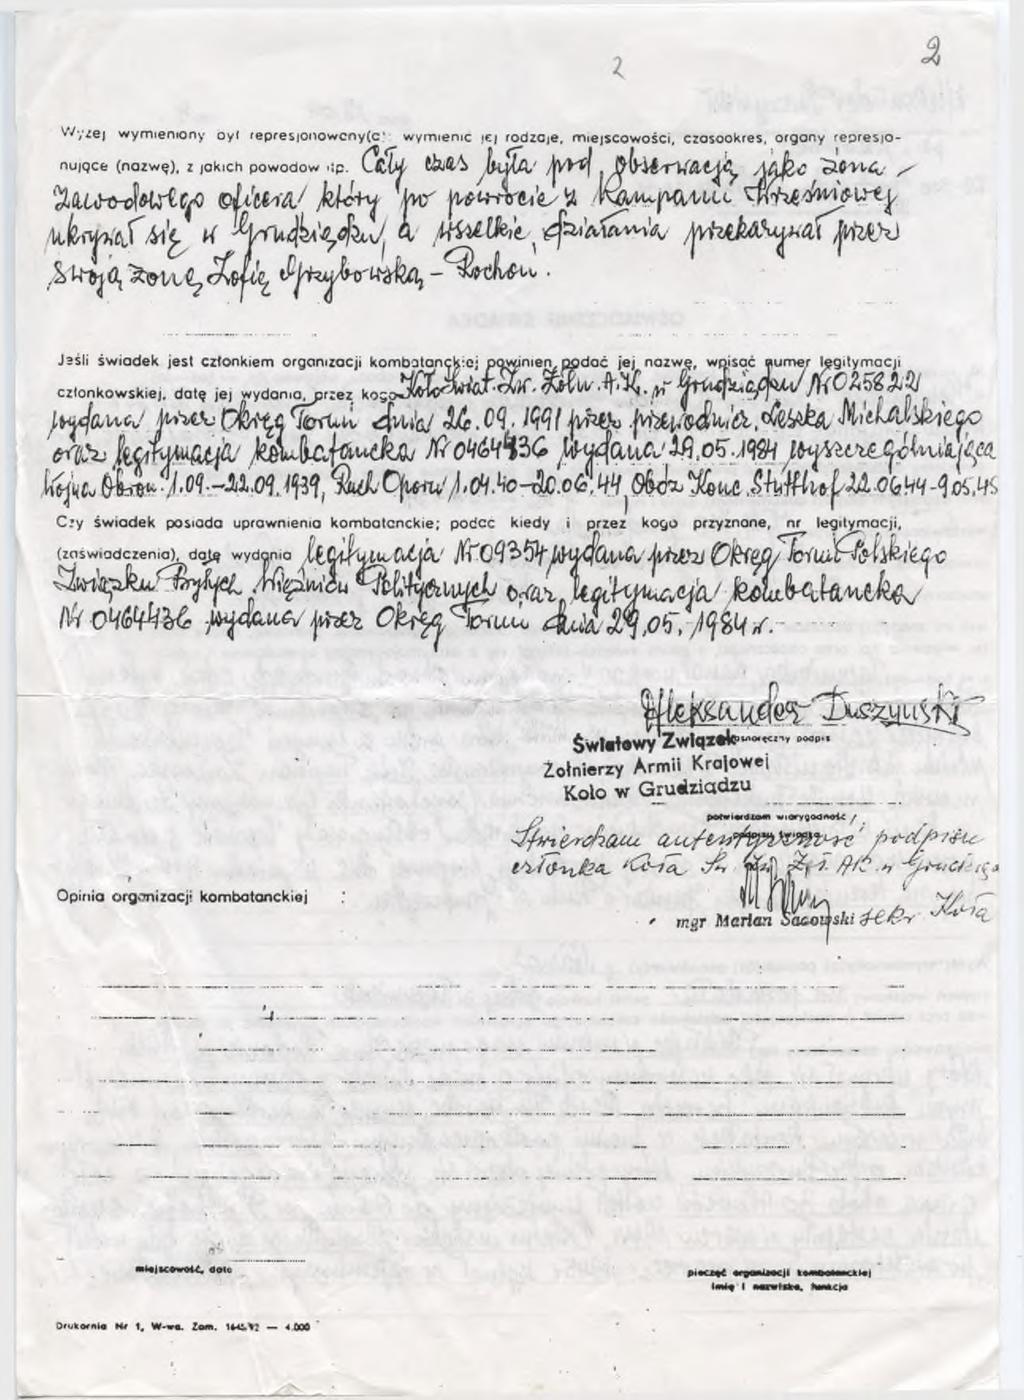 2
2
Wyżej wymieniony był represjonowany(a): wymienić jej rodzaje, miejscowości, czasookres, organy represjo-
nujące (nazwę), z jakich powodów itp. Cały czas była pod obserwacją jako żona
zawodowego oficera który po powrocie z Kampanii Wrześniowej
ukrywał się w Grudziądzu, a wszelkie działania przekazywał przez
swoją żonę Zofię Grzybowską - Rochoń.
Jeśli świadek jest członkiem organizacji kombatanckiej powinien podać jej nazwę, wpisać numer legitymacji
członkowskiej, datę jej wydania, przez kogo Koło Świat. Zw. Żołn. A.K. w Grudziądzu Nr 025822
wydana przez Okręg Toruń dnia 26.09.1991 przez przewodnicz. Leszka Michalskiego
oraz legitymacja kombatancka Nr 0464436 wydana 29.05.1984 wyszczególniająca
Wojna Obron. 1.09.-22.09.1939, Ruch Oporu 1.04.40-20.06.44, Obóz Konc. Stutthof 22.06.44-9.05.45
Czy świadek posiada uprawnienia kombatanckie; podać kiedy i przez kogo przyznane, nr legitymacji,
(zaświadczenia), datę wydania legitymacja Nr 09354 wydana przez Okręg Toruń Polskiego
Związku Byłych Więźniów Politycznych oraz legitymacja kombatancka
Nr 0464436 wydana przez Okręg Toruń dnia 29.05.1984 r.
Aleksander Duszyński
własnoręczny podpis
Światowy Związek
Żołnierzy Armii Krajowej
Koło w Grudziądzu
potwierdzam wiarygodność
podpisu świadka
Stwierdzam autentyczność podpisu
członka Koła Św. Zw. Żoł. AK w Grudziądzu
Opinia organizacji kombatanckiej :
mgr Marian Sadowski sekr Koła
miejscowość, data
pieczęć organizacji kombatanckiej
imię i nazwisko, funkcja
Drukarnia Nr 1, W-wa. Zam. 1645/92 — 4.000